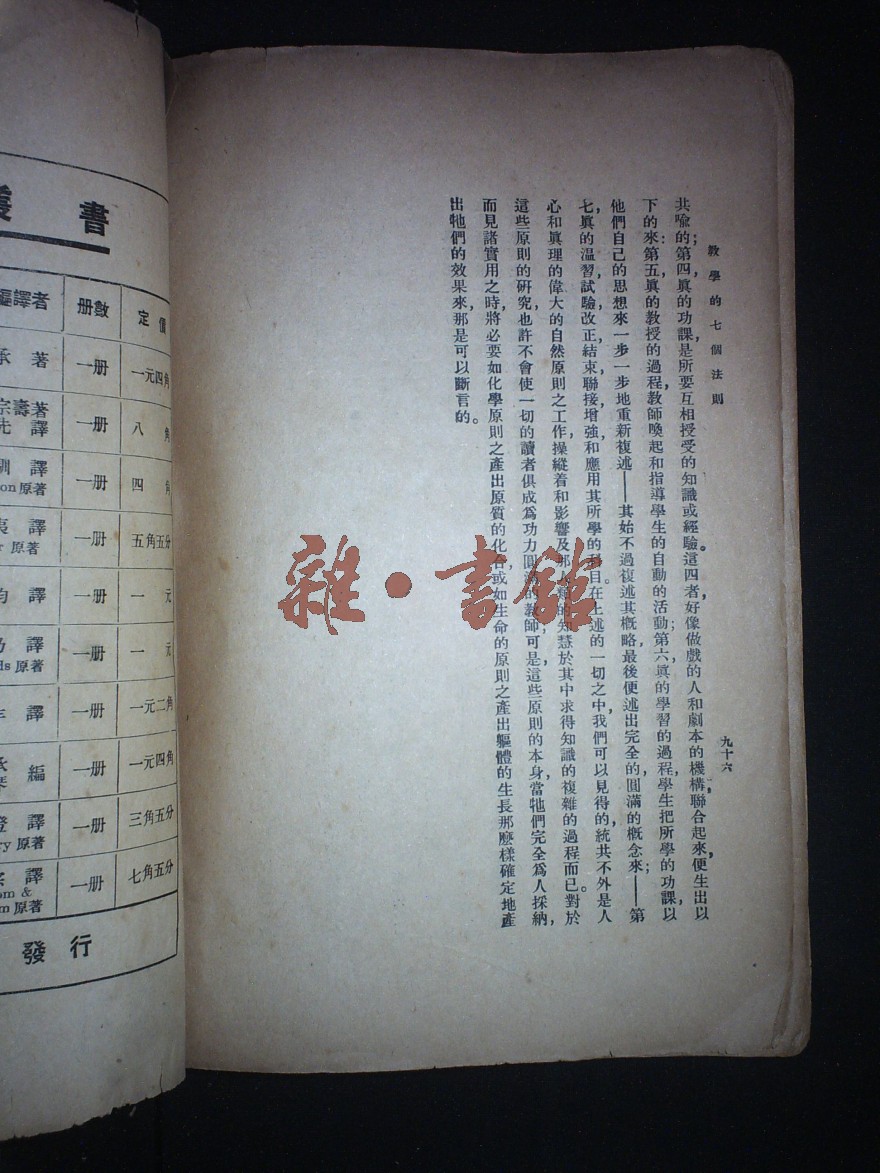 教學的七個法則
九十六
共喩的；第四，眞的功課，是所要互相授受的知識或經驗。這四者，好像做戲的人和劇本的機構，聯合起來，便生出以
下的來：第五，眞的敎授的過程，敎師喚起和指導學生的自動的活動；第六，眞的學習的過程，學生把所學的功課，以
他們自己的思想來一步一步地重新複述——其始不過複述其概略，最後便述出完全的，圓滿的概念來——；第
七，眞的溫習，試驗，改正，結束，聯接，增強，和應用其所學的目。在上述的一切之中，我們可以見得的，統共不外是人
心和眞理的偉大的自然原則之工作，操縱着和影響及那人類的知慧於其中求得知識的複雜的過程而已。對於
這些原則的硏究，也許不會使一切的讀者俱成爲功力圓滿的敎師，可是這些原則的本身，當牠們完全爲人採納，
而見諸實用之時，將必要如化學原則之產出原質的化合，或如生命的原則之產出軀體的生長那麽樣確定地產
出牠們的效果來，那是可以斷言的。
叢書
編譯者 册數 定價
承著 一册 一元四角
宗壽著
先譯 一册 八角
訓譯
on原著 一册 四角
譯
r 原著 一册 五角五分
均譯 一册 一元
乃譯
ds 原著 一册 一元
譯 一册 一元二角
編 一册 一元四角
澄譯
ry 原著 一册 三角五分
譯
om &
m 原著 一册 七角五分
發行
雜·書館